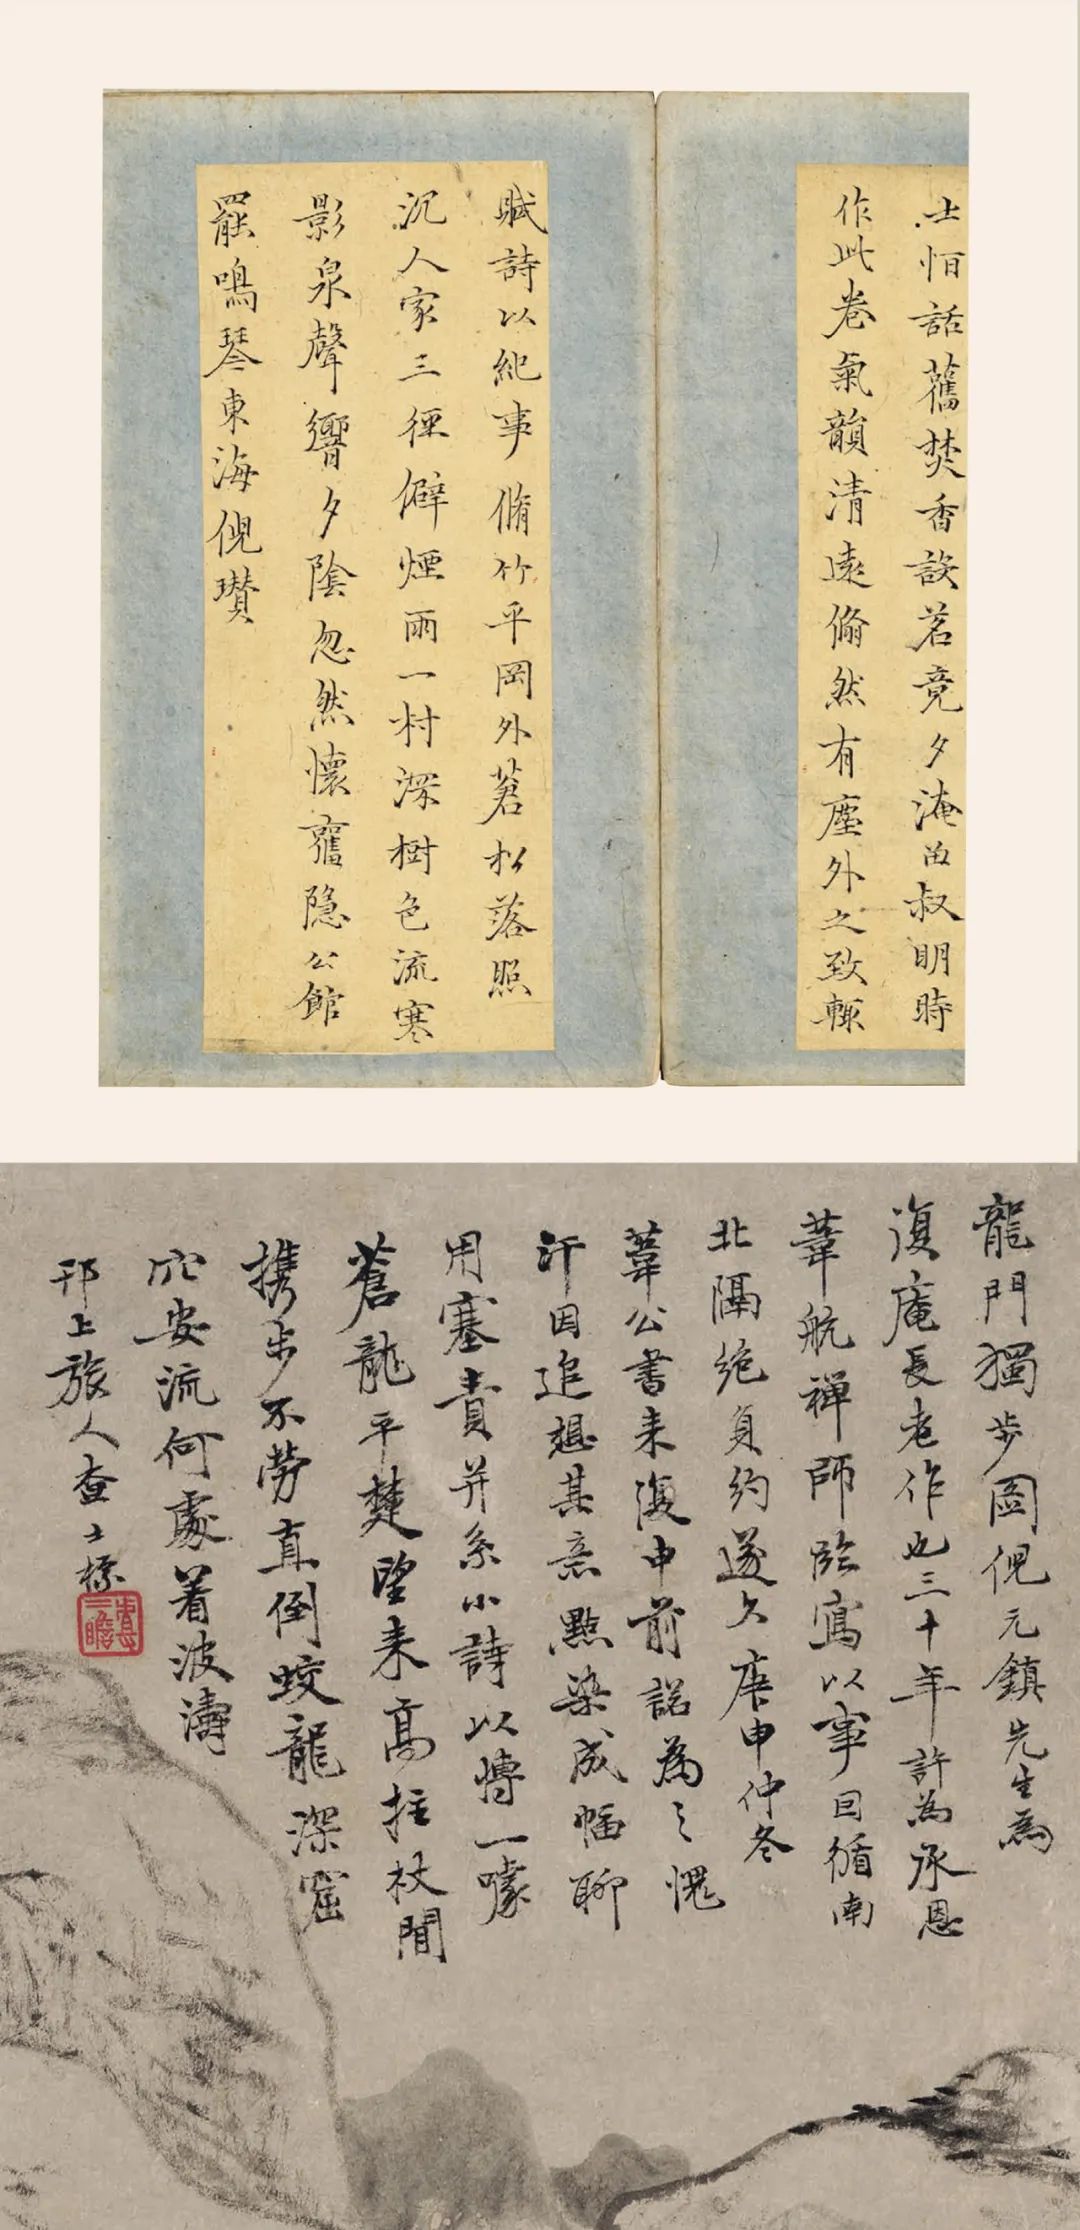 士怕話舊焚香設茗竟夕淹留叔明時
作此卷氣韻清遠翛然有塵外之致輙
賦詩以紀事脩竹平岡外蒼松落照
沉人家三徑僻煙雨一村深樹色流寒
影泉聲響夕陰忽然懷舊隱公館
罷鳴琴東海倪瓚
龍門獨步圖倪元鎮先生為
復庵長老作也三十年許為承恩
葦航禪師臨寫以事因循南
北隔絶負約遂久庚申仲冬
葦公書来復申前諾為之愧
汗因追想其意點染成幅聊
用塞責并系小詩以博一噱
蒼龍平楚望来高拄杖閒
携步不勞直倒蛟龍深窟
安流何處着波濤
邗上旅人查士標
查二瞻